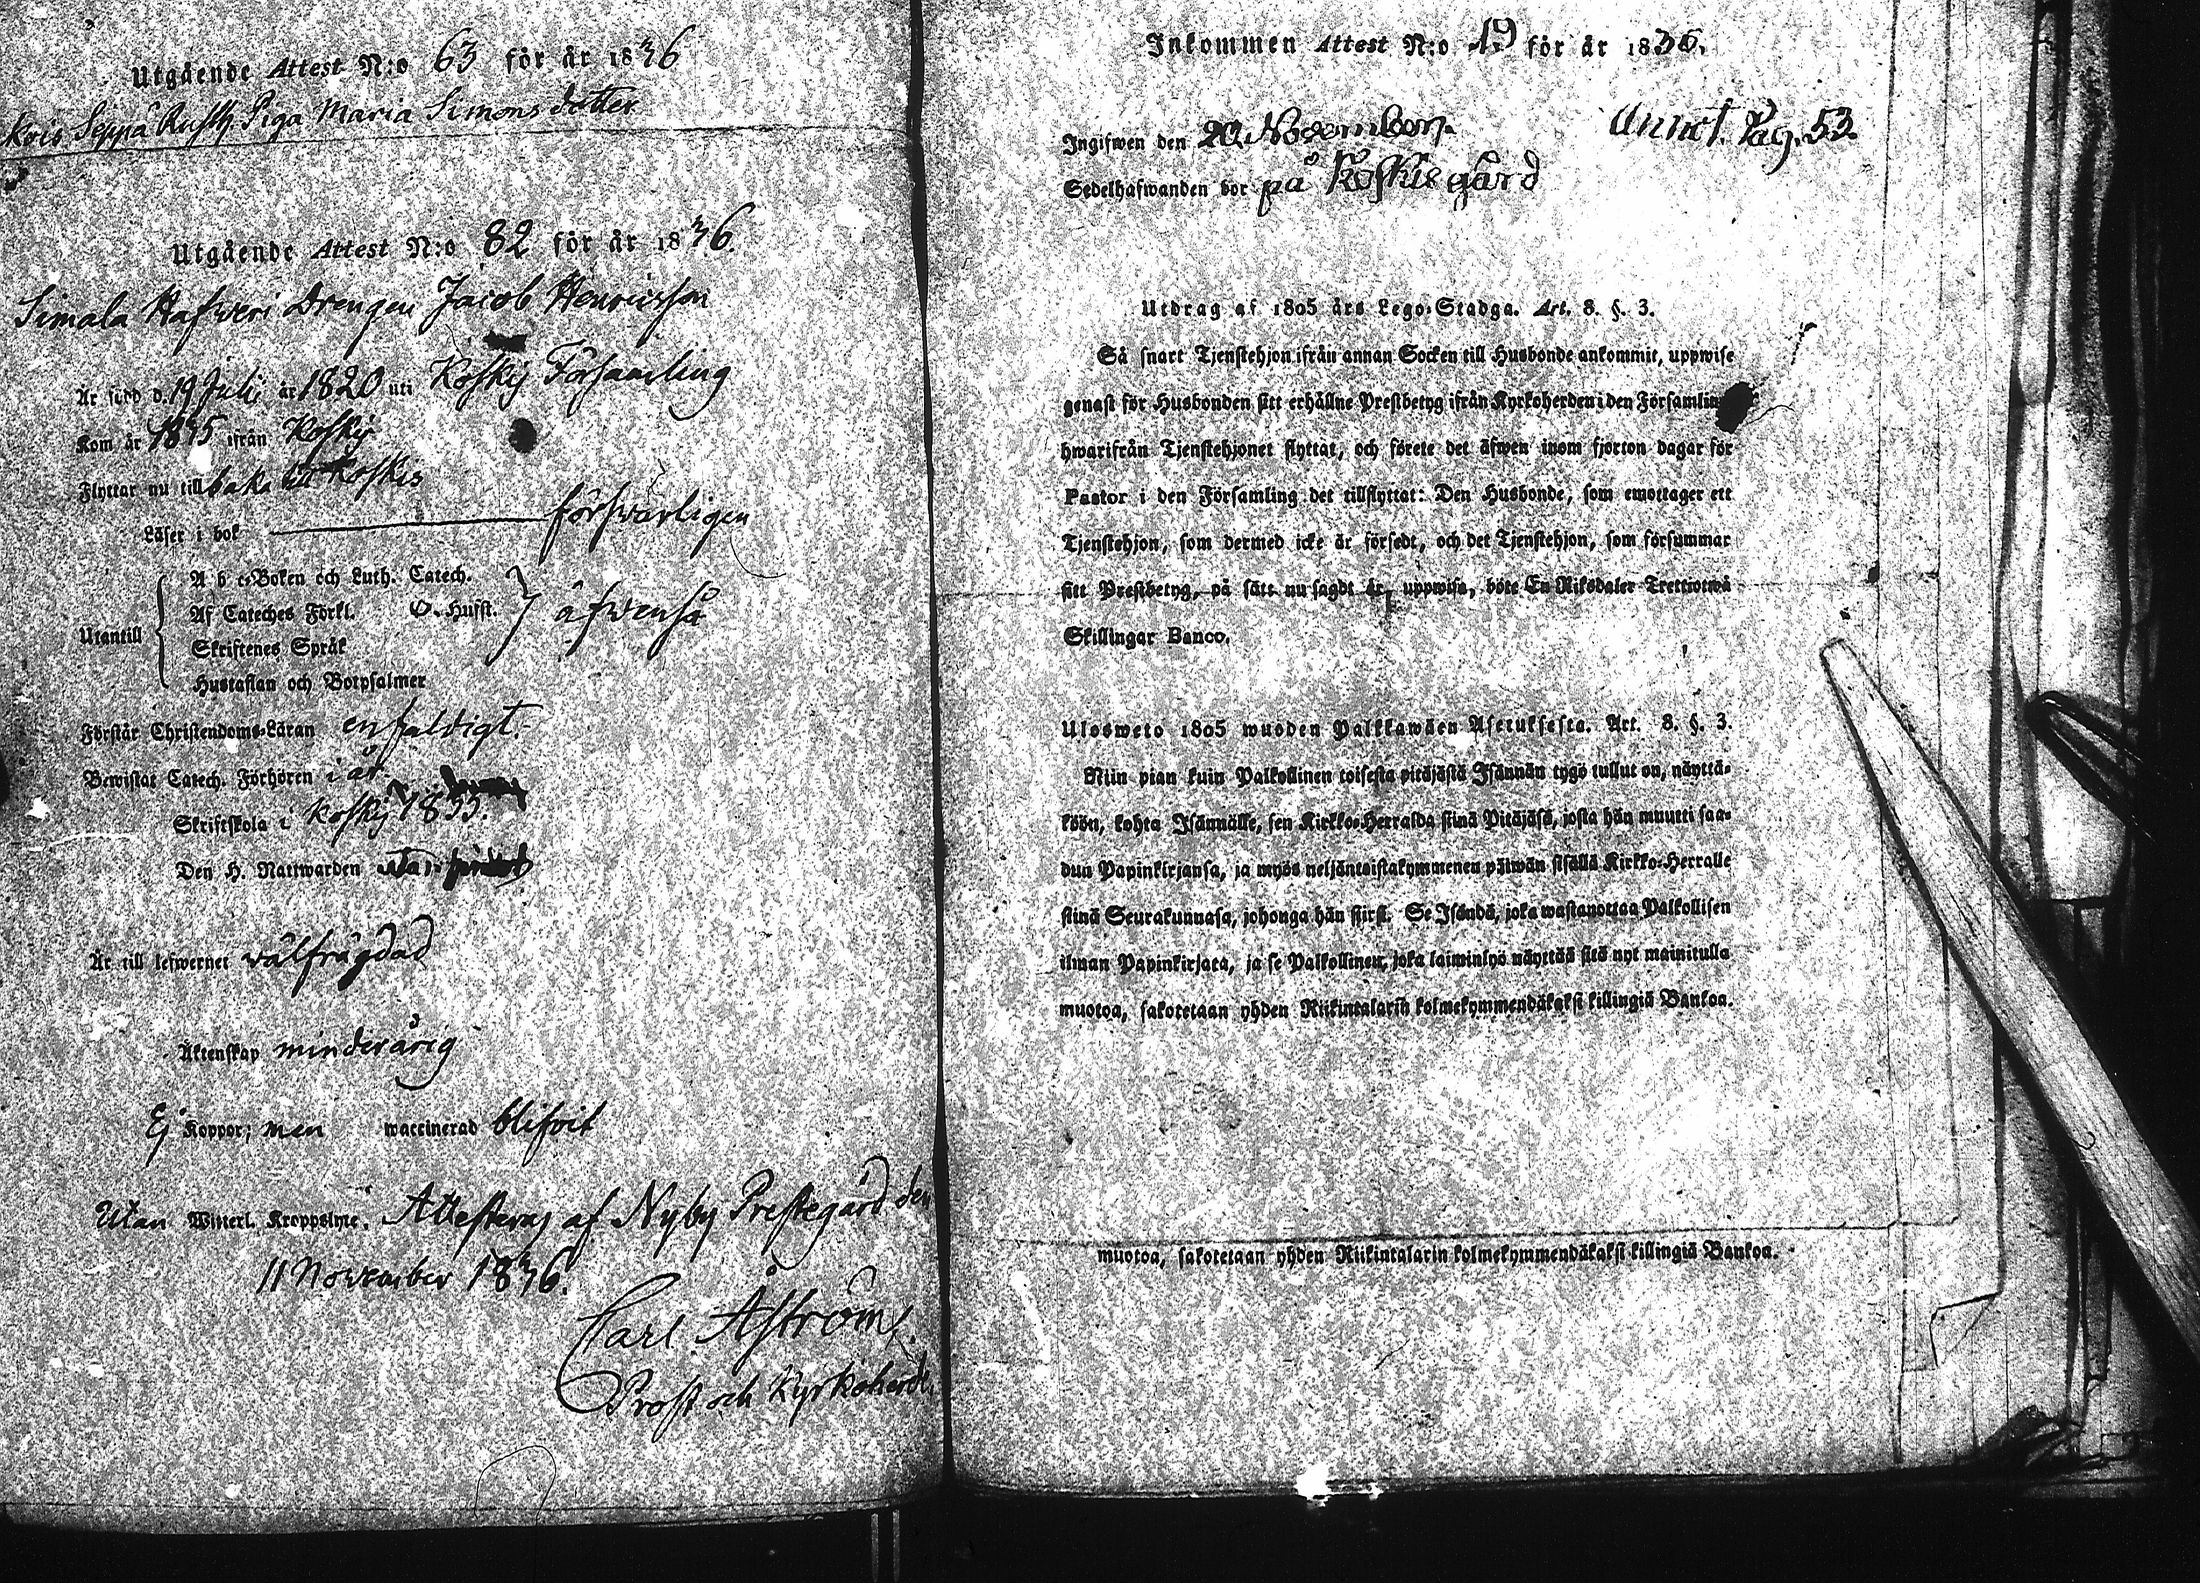 Utgående Attest N:o 63 för år 1836
Kois Seppä Rusth. Piga Maria Simons dotter
Utgående Attest N:o 82 för år 1836.
Simala Hafveri Drengen Jacob Henricsson
Är född d. 19 Juli år 1820 uti Koskis Församling
Kom år 1835 ifrån Koskis
Flyttar nu tillbaka till Koskis
Läser i bok försvarligen
A b c-Boken och Luth. Catech.
Af Cateches Förkl. O. Hufst. äfvenså
Utantill
Skriftenes Språk
Hustaflan och Botpsalmer
Förstår Christendoms-Läran enfaldigt.
Bewistat Catech. Förhören i år.
Skriftskola i Koskis 1835.
Den H. Nattwarden
Är till lefwernet välfrägdad
Äktenskap minderårig
Ej Koppor; men waccinerad blifvit
Utan Witterl. Kroppslyte. Attesteras af Nyby Prestegård den
11 November 1836.
Carl Åström
Prost och Kyrkoherde
Inkommen Attest N:o 19 för år 1836.
Ingifwen den 20 November. Annot. Pag. 53.
Sedelhafwanden bor på Koskis gård
Utdrag af 1805 års Lego-Stadga. Art. 8. §. 3.
Så snart Tjenstehjon ifrån annan Socken till Husbonde ankommit, uppwise
genast för Husbonden sitt erhållne Prestbetyg ifrån Kyrkoherden i den Församling
hwarifrån Tjenstehjonet flyttat, och förete det äfwen inom fjorton dagar för
Pastor i den Församling det tillflyttat: Den Husbonde, som emottager ett
Tjenstehjon, som dermed icke är försedt, och det Tjenstehjon, som försummar
sitt Prestbetyg, på sätt nu sagdt är, uppwisa, böte En Riksdaler Trettiotwå
Skillingar Banco.
Ulosweto 1805 wuoden Palkkawäen Asetuksesta. Art. 8. §. 3.
Niin pian kuin Palkollinen toisesta pitäjästä Isännän tygö tullut on, näyttä-
köön, kohta Isännälle, sen Kirkko-Herralda siinä Pitäjäsä, josta hän muutti saa-
dun Papinkirjansa, ja myös neljäntoistakymmenen päiwän sisällä Kirkko-Herralle
siinä Seurakunnasa, johonga hän siirsi. Se Isändä, joka wastanottaa Palkollisen
ilman Papinkirjata, ja se Palkollinen, joka laiminlyö näyttää sitä nyt mainitulla
muotoa, sakotetaan yhden Riikintalarin kolmekymmendäkaksi killingiä Bankoa.
muotoa, sakotetaan yhden Riikintalarin kolmekymmendäkaksi killingiä Bankoa.